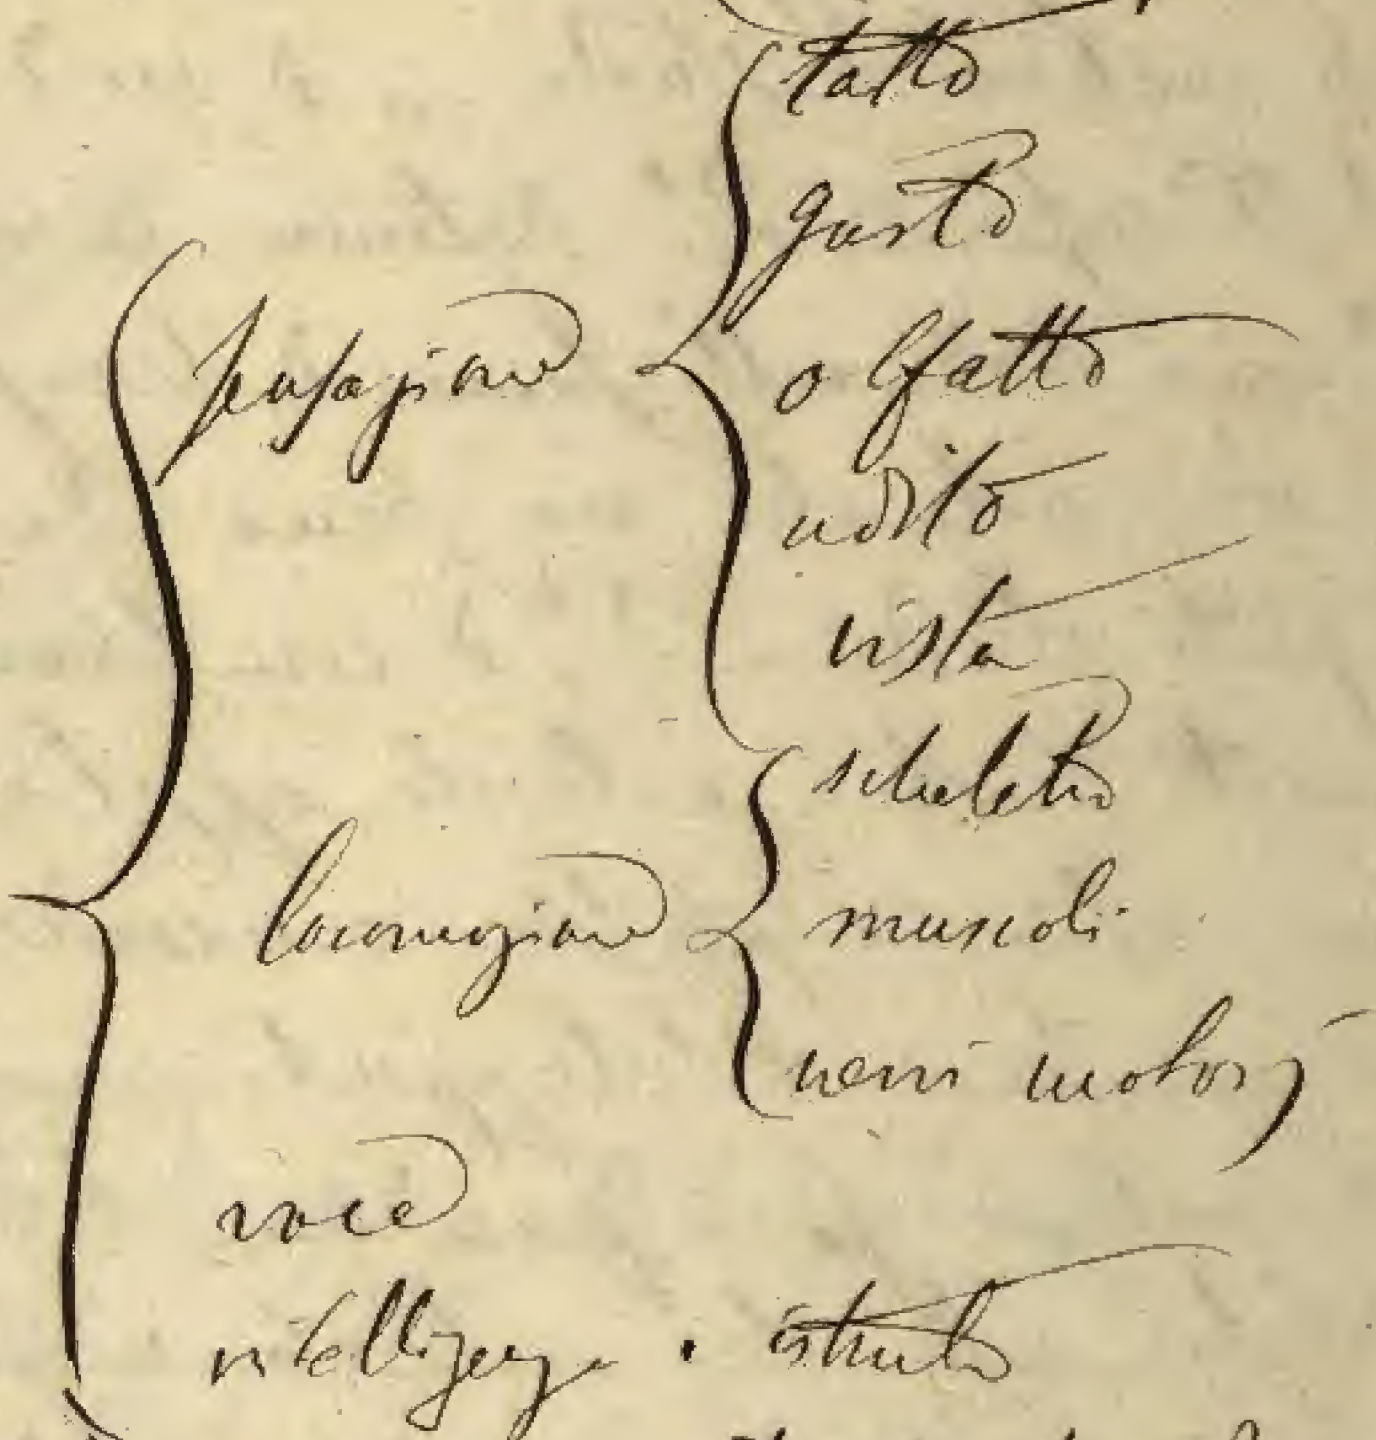 tatto
gusto
sensazione olfatto
udito
vista
scheletro
locomozione muscoli
nervi motorj
voce
intelligenza . istinto